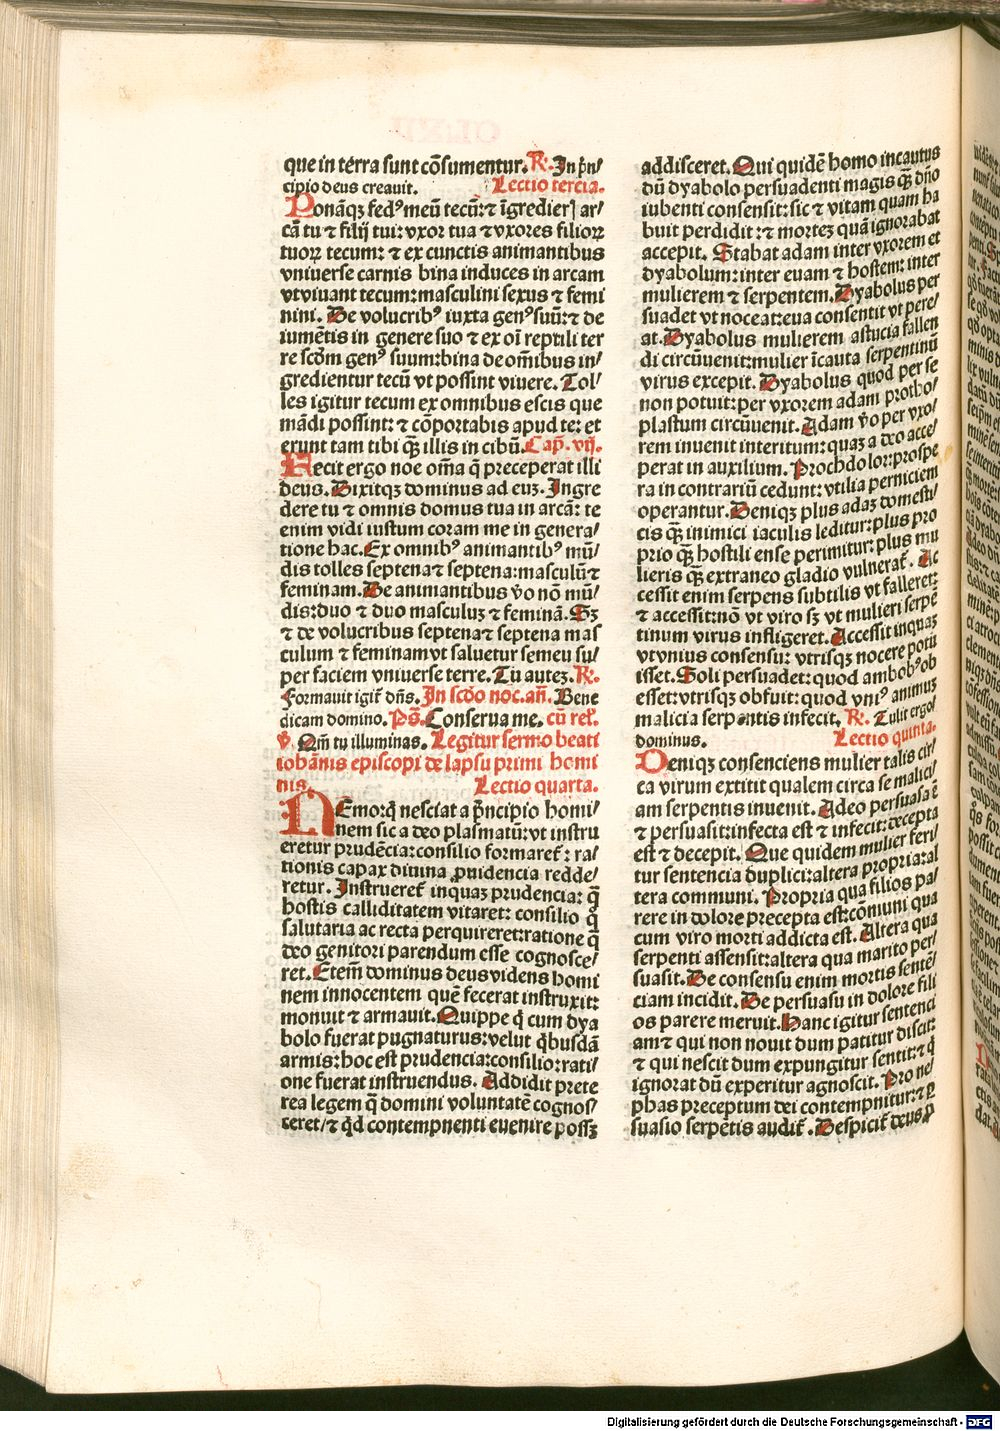 que in terra sunt cōsumentur. R. In p̄n/
cipio deus creauit. Lectio tercia.
Ponāqꝫ fedꝰ meū tecū: ⁊ īgredierꝭ ar/
cā tu ⁊ filij tui: vxor tua ⁊ vxores filioꝝ
tuoꝝ tecum: ⁊ ex cunctis animantibus
vniuerse carnis bina induces in arcam
vt viuant tecum: masculini sexus ⁊ femi
nini. De volucribꝰ iuxta genꝰ suū: ⁊ de
iumētis in genere suo ⁊ ex oī reptili ter
re scd̄m genꝰ suum: bina de om̄ibus in/
gredientur tecū vt possint viuere. Tol/
les igitur tecum ex omnibus escis que
mādi possint: ⁊ cōportabis apud te: et
erunt tam tibi q̄ꝫ illis in cibū. Cap. vij.
Fecit ergo noe om̄a q̄ preceperat illi
deus. Dixitqꝫ dominus ad euꝫ. Ingre
dere tu ⁊ omnis domus tua in arcā: te
enim vidi iustum coram me in genera/
tione hac. Ex omnibꝰ animantibꝰ mū/
dis tolles septena ⁊ septena: masculū ⁊
feminam. De animantibus v̄o nō mū/
dis: duo ⁊ duo masculuꝫ ⁊ feminā. Sꝫ
⁊ de volucribus septena ⁊ septena mas
culum ⁊ feminam vt saluetur semeu su/
per faciem vniuerse terre. Tu autez. R.
Formauit igit̄ dn̄s. In scd̄o noc. an̄. Bene
dicam domino. Ps̄. Conserua me. cū rel̄.
v̄. Qm̄ tu illuminas. Legitur sermo beati
iohānis episcopi de lapsu primi homi
nis. Lectio quarta.
NEmo: q̄ nesciat a p̄ncipio homi/
nem sic a deo plasmatū: vt instru
eretur prudēcia: consilio formaret̄: ra/
tionis capax diuina ꝓuidencia redde/
retur. Instrueret̄ inquaꝫ prudencia: q̄
hostis calliditatem vitaret: consilio q̄
salutaria ac recta perquireret: ratione q̄
deo genitori parendum esse cognosce/
ret. Eteni̅ dominus deus videns homi
nem innocentem quē fecerat instruxit:
monuit ⁊ armauit. Quippe q̄ cum dya
bolo fuerat pugnaturus: velut q̄busdā
armis: hoc est prudencia: consilio: rati/
one fuerat instruendus. Addidit prete
rea legem q̄ domini voluntatē cognos/
ceret/ ⁊ q̄d contempnenti euenire possꝫ
addisceret. Qui quidē homo incautus
dū dyabolo persuadenti magis q̄ꝫ dn̄o
iubenti consensit: sic ⁊ vitam quam ha
buit perdidit: ⁊ mortez quā ignorabat
accepit. Stabat adam inter vxorem et
dyabolum: inter euam ⁊ hostem: inter
mulierem ⁊ serpentem. Dyabolus per
suadet vt noceat: eua consentit vt pere/
at. Dyabolus mulierem astucia fallen
di circūuenit: mulier īcauta serpentinū
virus excepit. Dyabolus quod per se
non potuit: per vxorem adam protho/
plastum circūuenit. Adam v̄o per vxo/
rem inuenit interitum: quaꝫ a deo acce/
perat in auxilium. Proch dolor: prospe
ra in contrariū cedunt: vtilia perniciem
operantur. Deniqꝫ plus adaꝫ domesti/
cis q̄ꝫ inimici iaculis leditur: plus pro
prio q̄ꝫ hostili ense perimitur: plus mu
lieris q̄ꝫ extraneo gladio vulnerat̄. Ac
cessit enim serpens subtilis vt falleret:
⁊ accessit: nō vt viro sꝫ vt mulieri serpē
tinum virus infligeret. Accessit inquaꝫ
vt vnius consensu: vtrisqꝫ nocere potu
isset. Soli persuadet: quod ambobꝰ ob
esset: vtrisqꝫ obfuit: quod vniꝰ animus
malicia serpentis infecit. R. Tulit ergo
dominus. Lectio quinta.
Deniqꝫ consenciens mulier talis cir/
ca virum extitit qualem circa se malici/
am serpentis inuenit. Adeo persuasa ē
⁊ persuasit: infecta est ⁊ infecit: decepta
est ⁊ decepit. Que quidem mulier feri/
tur sentencia duplici: altera propria: al
tera communi. Propria qua filios pa/
rere in dolore precepta est: cōmuni qua
cum viro morti addicta est. Altera qua
serpenti assensit: altera qua marito per/
suasit. De consensu enim mortis sentē/
ciam incidit. De persuasu in dolore fili
os parere meruit. Hanc igitur sentenci
am ⁊ qui non nouit dum patitur discit:
⁊ qui nescit dum expungitur sentit: ⁊ q̄
ignorat dū experitur agnoscit. Pro ne/
phas preceptum dei contempnitur: ⁊ ꝑ
suasio serpētis audit̄. Despicit̄ deus ꝑ